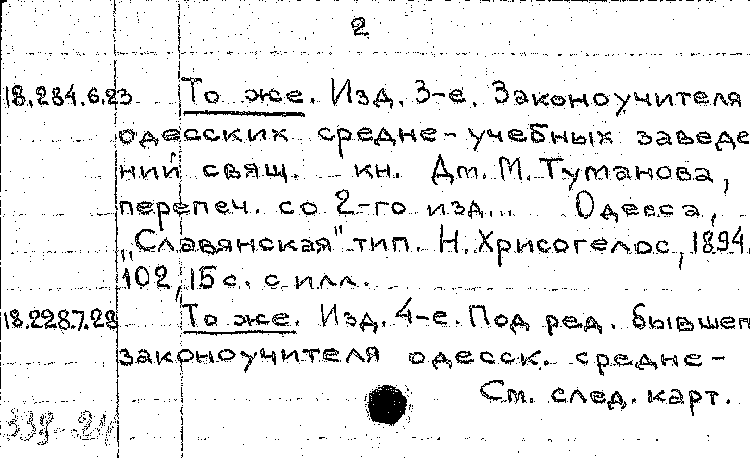 2
18.284.6.23 То же. Изд. 3-е. Законоучителя
одесских средне-учебных заведе
ний свящ. кн. Дм. М. Туманова,
перепеч. со 2-го изд... Одесса,
„Славянская" тип. Н. Хрисогелос, 1894.
102, 15 с. с илл.
18.228.7.28 То же. Изд. 4-е. Под ред. бывшег
законоучителя одесск. средне-
См. след. карт.